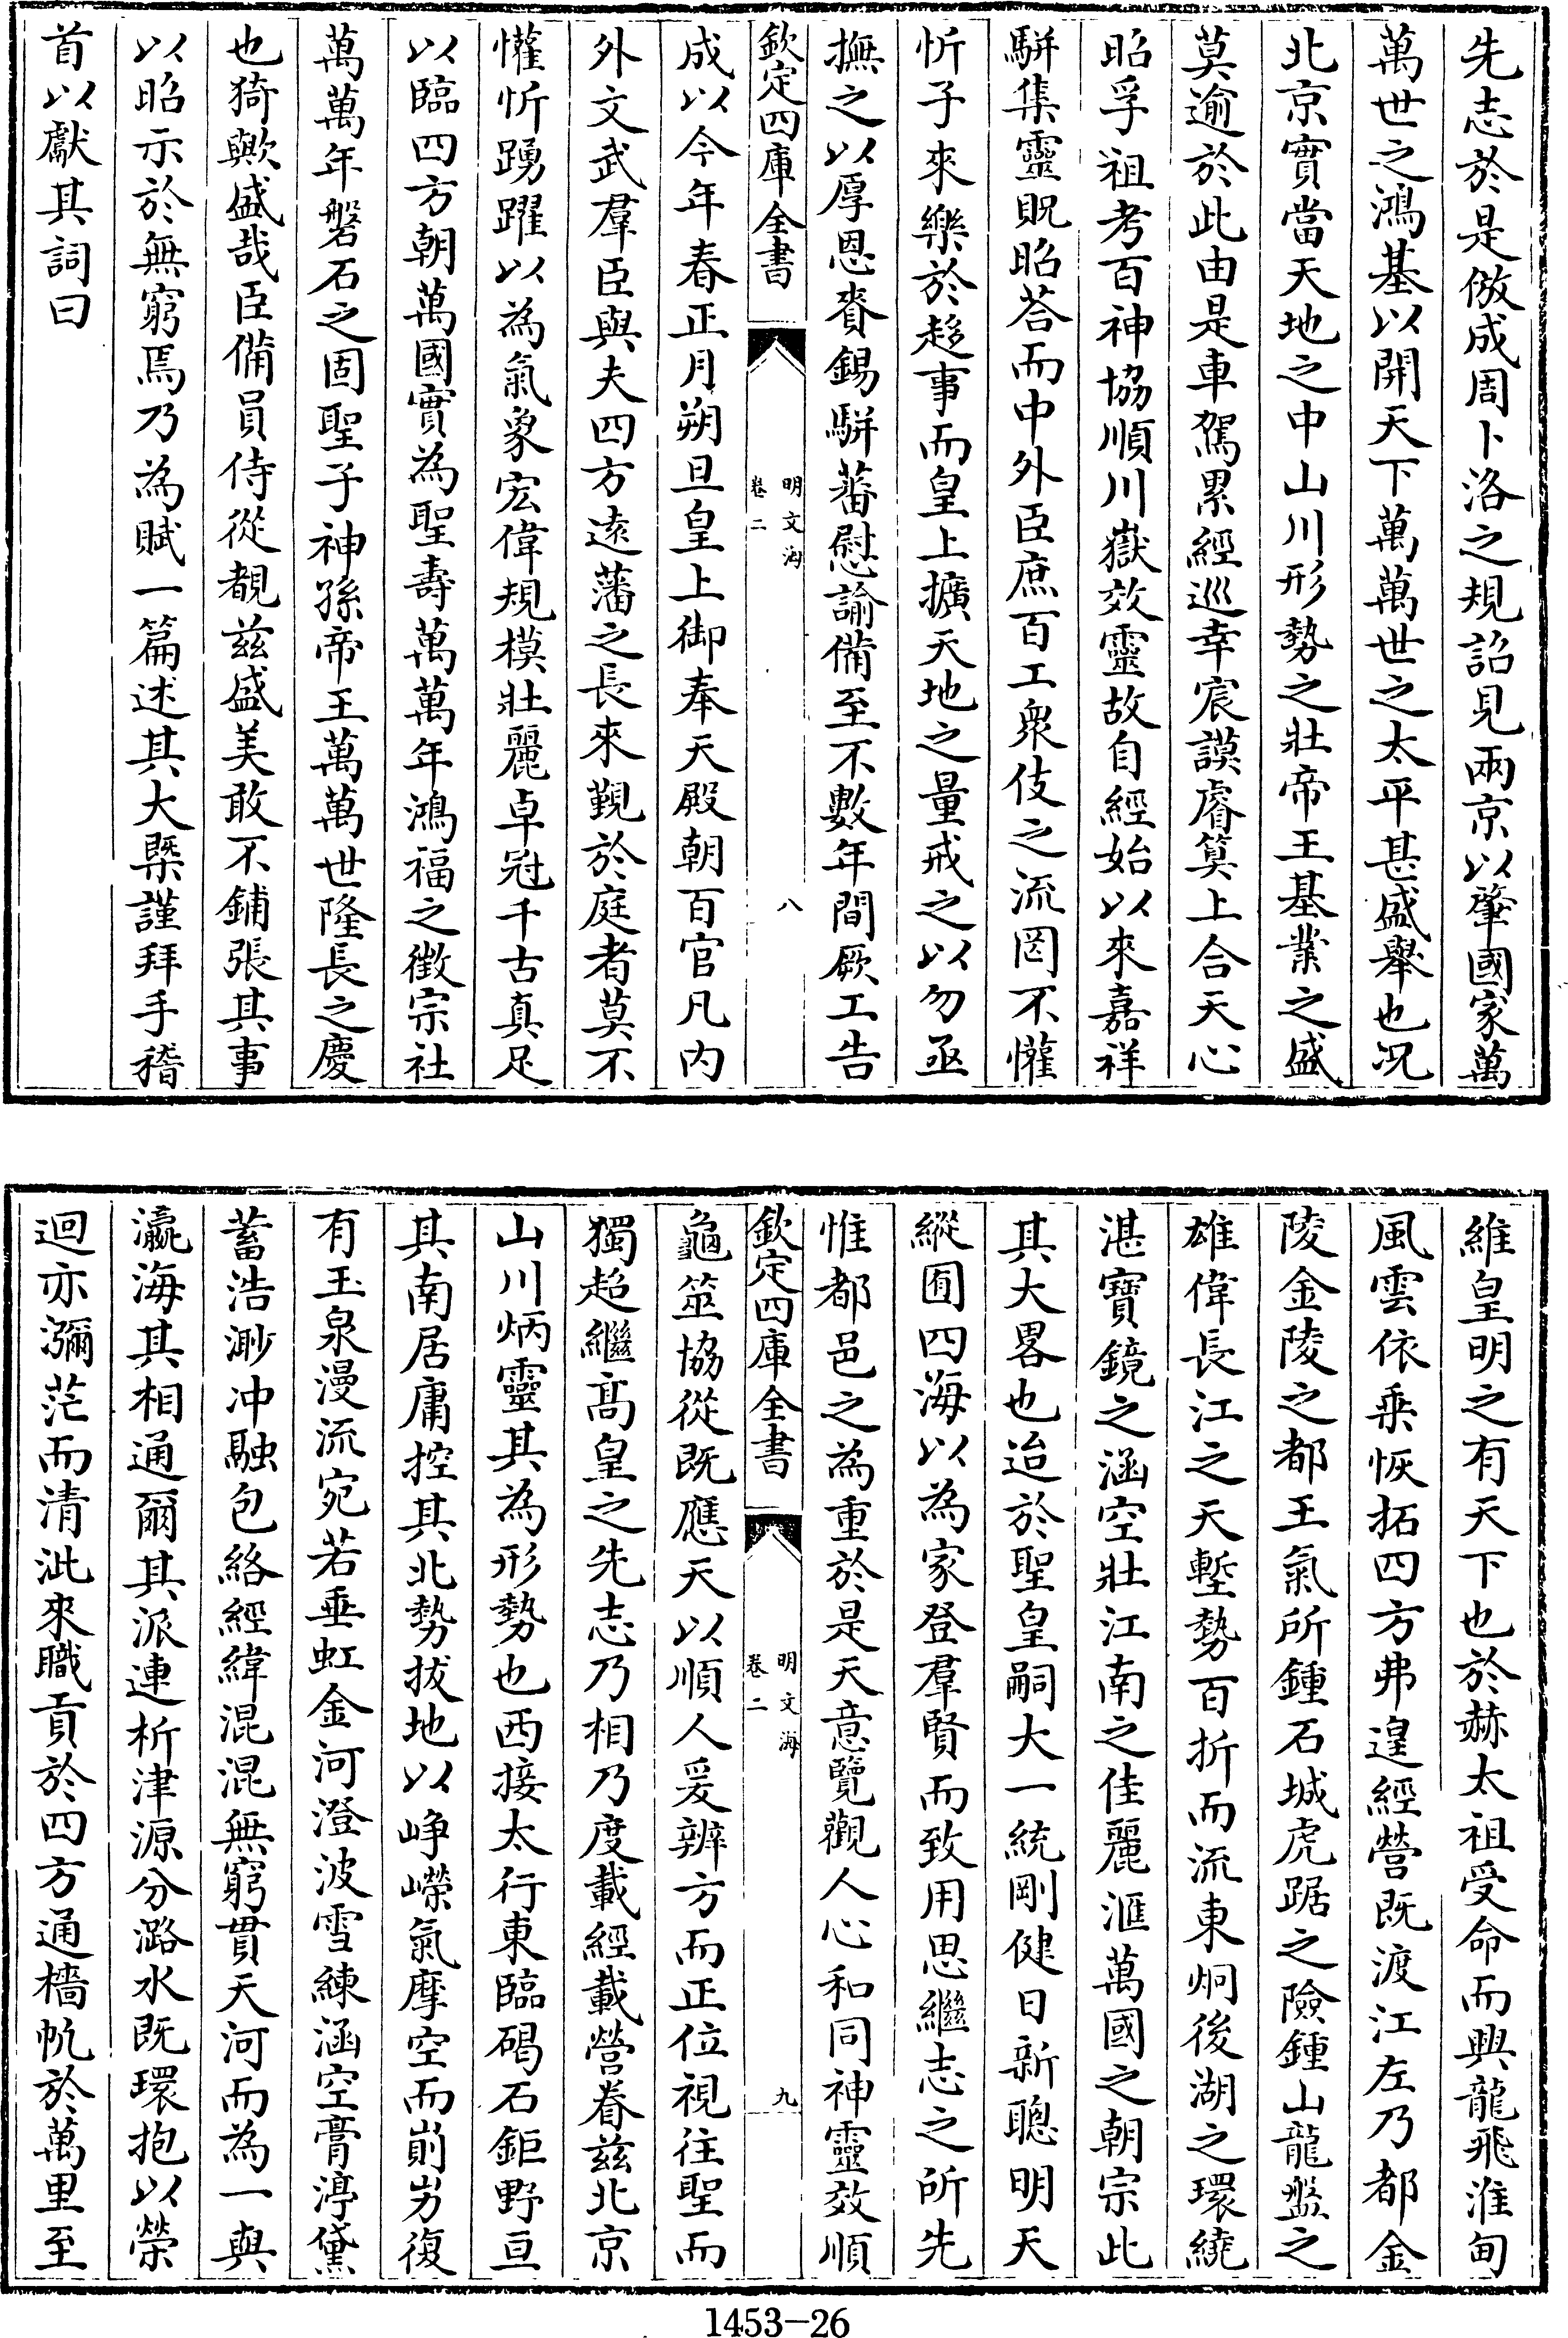 先志於是倣成周卜洛之規詔見兩京以肇國家萬
萬世之鴻基以開天下萬萬世之太平甚盛舉也况
北京實當天地之中山川形勢之壯帝王基業之盛
莫逾於此由是車駕累經巡幸宸謨睿筭上合天心
昭孚祖考百神協順川嶽效靈故自經始以來嘉祥
駢集靈貺昭荅而中外臣庶百工衆伎之流罔不懽
忻子來樂於趍事而皇上擴天地之量戒之以勿亟
撫之以厚恩賚錫駢蕃慰諭備至不數年間厥工告
欽定四庫全書
明文海
卷二
八
成以今年春正月朔旦皇上御奉天殿朝百官凡内
外文武羣臣與夫四方遠藩之長來覲於庭者莫不
懽忻踴躍以為氣象宏偉規模壯麗卓冠千古真足
以臨四方朝萬國實為聖壽萬萬年鴻福之徵宗社
萬萬年磐石之固聖子神孫帝王萬萬世隆長之慶
也猗歟盛哉臣備員侍從覩兹盛美敢不鋪張其事
以昭示於無窮焉乃為賦一篇述其大槩謹拜手稽
首以獻其詞曰
維皇明之有天下也於赫太祖受命而興龍飛淮甸
風雲依乗恢拓四方弗遑經營既渡江左乃都金
陵金陵之都王氣所鍾石城虎踞之險鍾山龍盤之
雄偉長江之天塹勢百折而流東炯後湖之環繞
湛寶鏡之涵空壯江南之佳麗滙萬國之朝宗此
其大畧也迨於聖皇嗣大一統剛健日新聰明天
縱囿四海以為家登羣賢而致用思繼志之所先
惟都邑之為重於是天意覽觀人心和同神靈效順
欽定四庫全書
明文海
卷二
九
龜筮協從既應天以順人爰辨方而正位視往聖而
獨超繼髙皇之先志乃相乃度載經載營眷兹北京
山川炳靈其為形勢也西接太行東臨碣石鉅野亘
其南居庸控其北勢拔地以峥嶸氣摩空而崱屴復
有玉泉漫流宛若垂虹金河澄波雪練涵空膏渟黛
蓄浩渺冲融包絡經緯混混無窮貫天河而為一與
瀛海其相通爾其派連析津源分潞水既環抱以縈
迴亦瀰茫而清泚來職貢於四方通檣帆於萬里至
1453-26